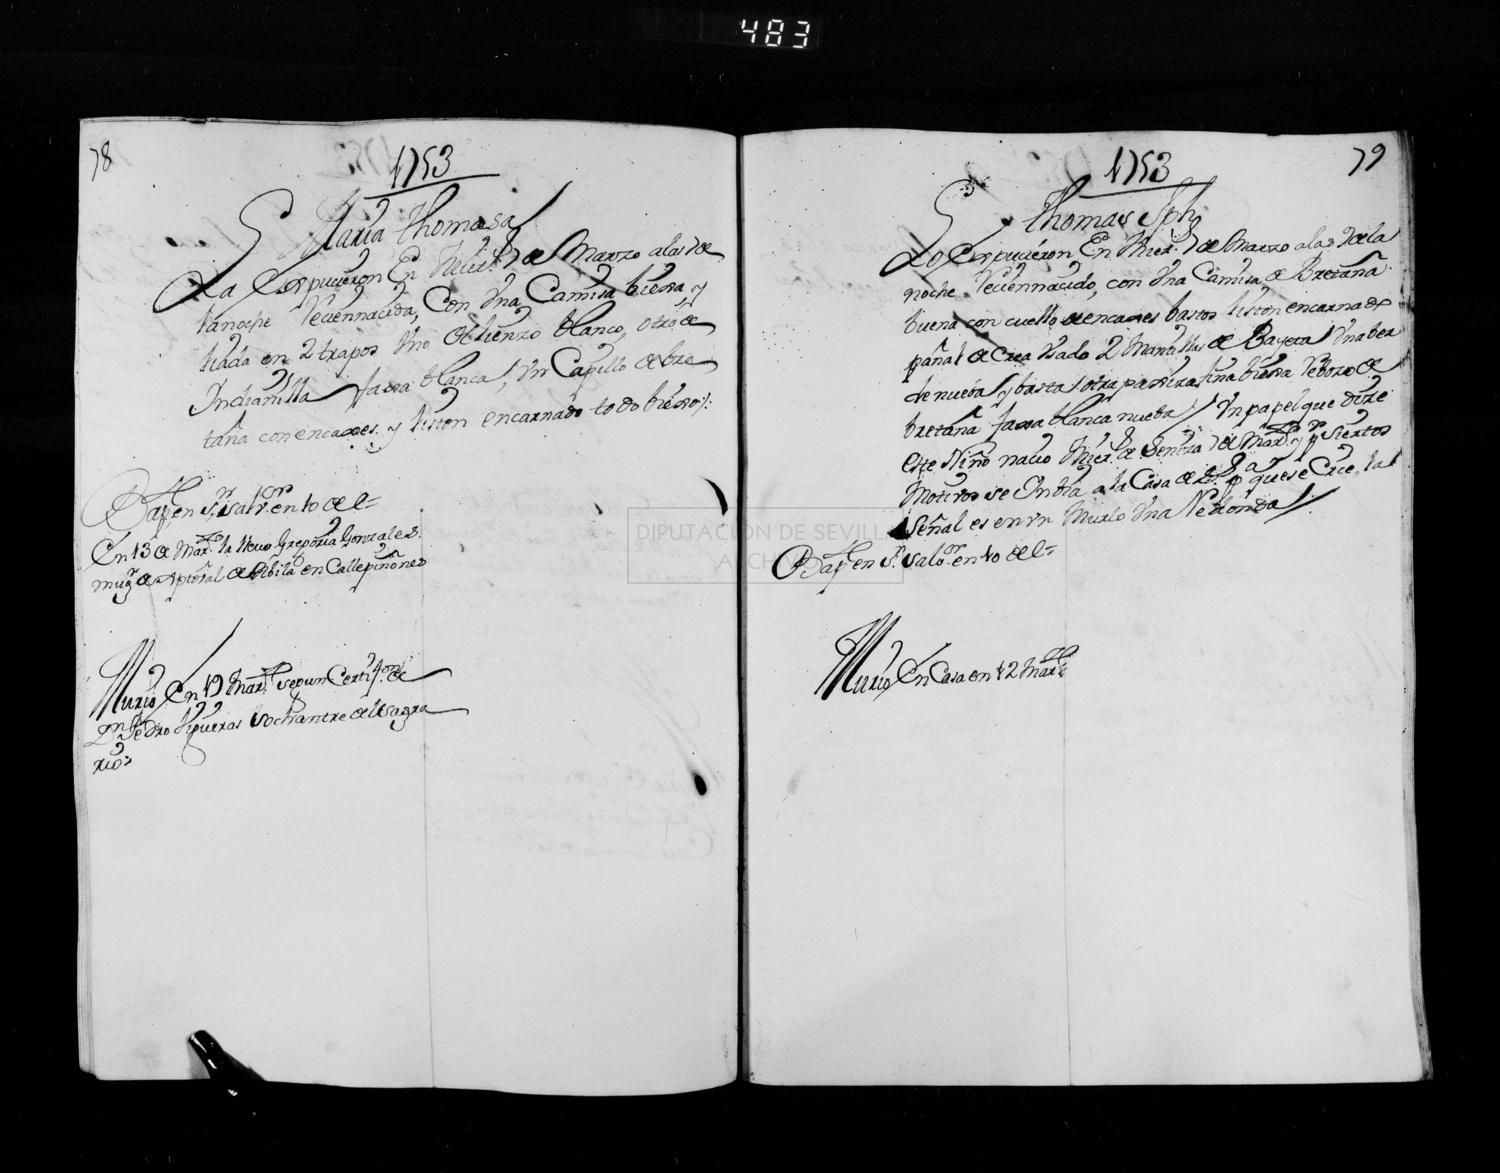 483
78
1753
Maria Thomasa
La Expucieron En Mier.s 7 de Marzo a las 7 de
la noche Reciennacida, Con Una Camisa bieja y
liada en 2 trapos Uno de lienzo blanco, otro de
Indianilla faxa blanca, Un Capillo de bre
taña con encaxes y liston encarnado todo biejo
Bap.da en S.r Salv.or en 10 de el
En 13 de Mar.zo la llevo Gregoria Gonzales
mug.r de en Calle piñones
Murio En 19 Mar.zo segun Certif.on de
D.n Pedro Figueras Sochantre del Sagra
rio
79
1753
Thomas Jph
Lo Expucieron En Mier.s 7 de Marzo a las 7 de la
noche Reciennacido, con Una Camisa de Bretaña
buena con cuello de encaxes bastos liston encarnado
pañal de Crea Usado 2 Mantillas de Bayeta Una ber
de nueba y basta otra pajiza fina bieja Reboso de
bretaña faxa blanca nueba Un papel que dize
este Niño nacio Mier.s de Seniza 7 de Mar.zo y p.r Siertos
Motivos se Enbia a la Casa de
Señal es en Un Muslo Una Redonda
Bap.do en S.r Salv.or en 10 de el
Murio En Casa en 12 Mar.zo
DIPUTACIÓN DE SEVILLA
ARCHIVO